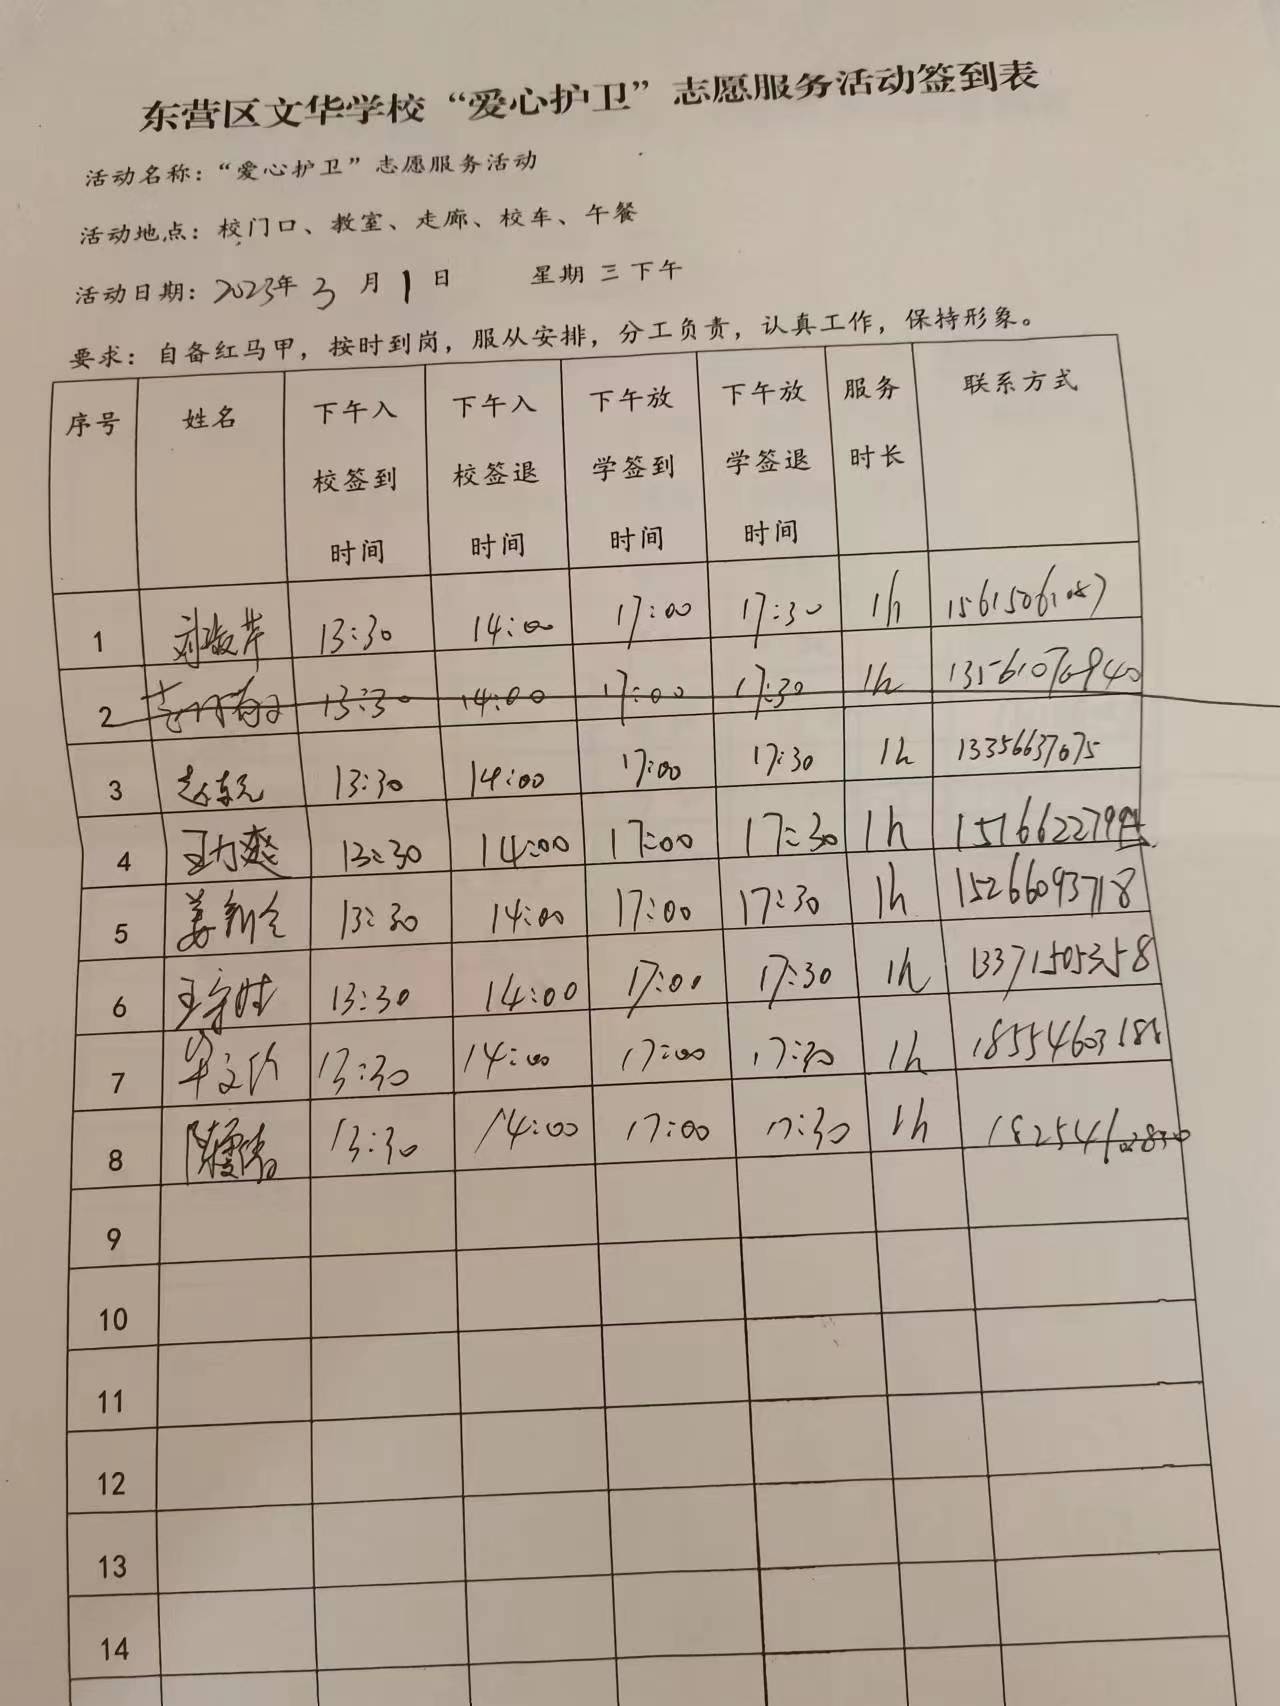 东营区文华学校“爱心护卫”志愿服务活动签到表
活动名称：“爱心护卫”志愿服务活动
活动地点：校门口、教室、走廊、校车、午餐
活动日期：2023年 3 月 1 日 星期 三 下午
要求：自备红马甲，按时到岗，服从安排，分工负责，认真工作，保持形象。
序号 姓名 下午入校签到时间 下午入校签退时间 下午放学签到时间 下午放学签退时间 服务时长 联系方式
1 13:30 14:00 17:00 17:30 1h 15615061087
2 13:30 14:00 17:00 17:30 1h
3 13:30 14:00 17:00 17:30 1h 13356637675
4 王力爽 13:30 14:00 17:00 17:30 1h
5 姜新全 13:30 14:00 17:00 17:30 1h 15266093718
6 13:30 14:00 17:00 17:30 1h 13371505358
7 13:30 14:00 17:00 17:30 1h
8 13:30 14:00 17:00 17:30 1h
9
10
11
12
13
14